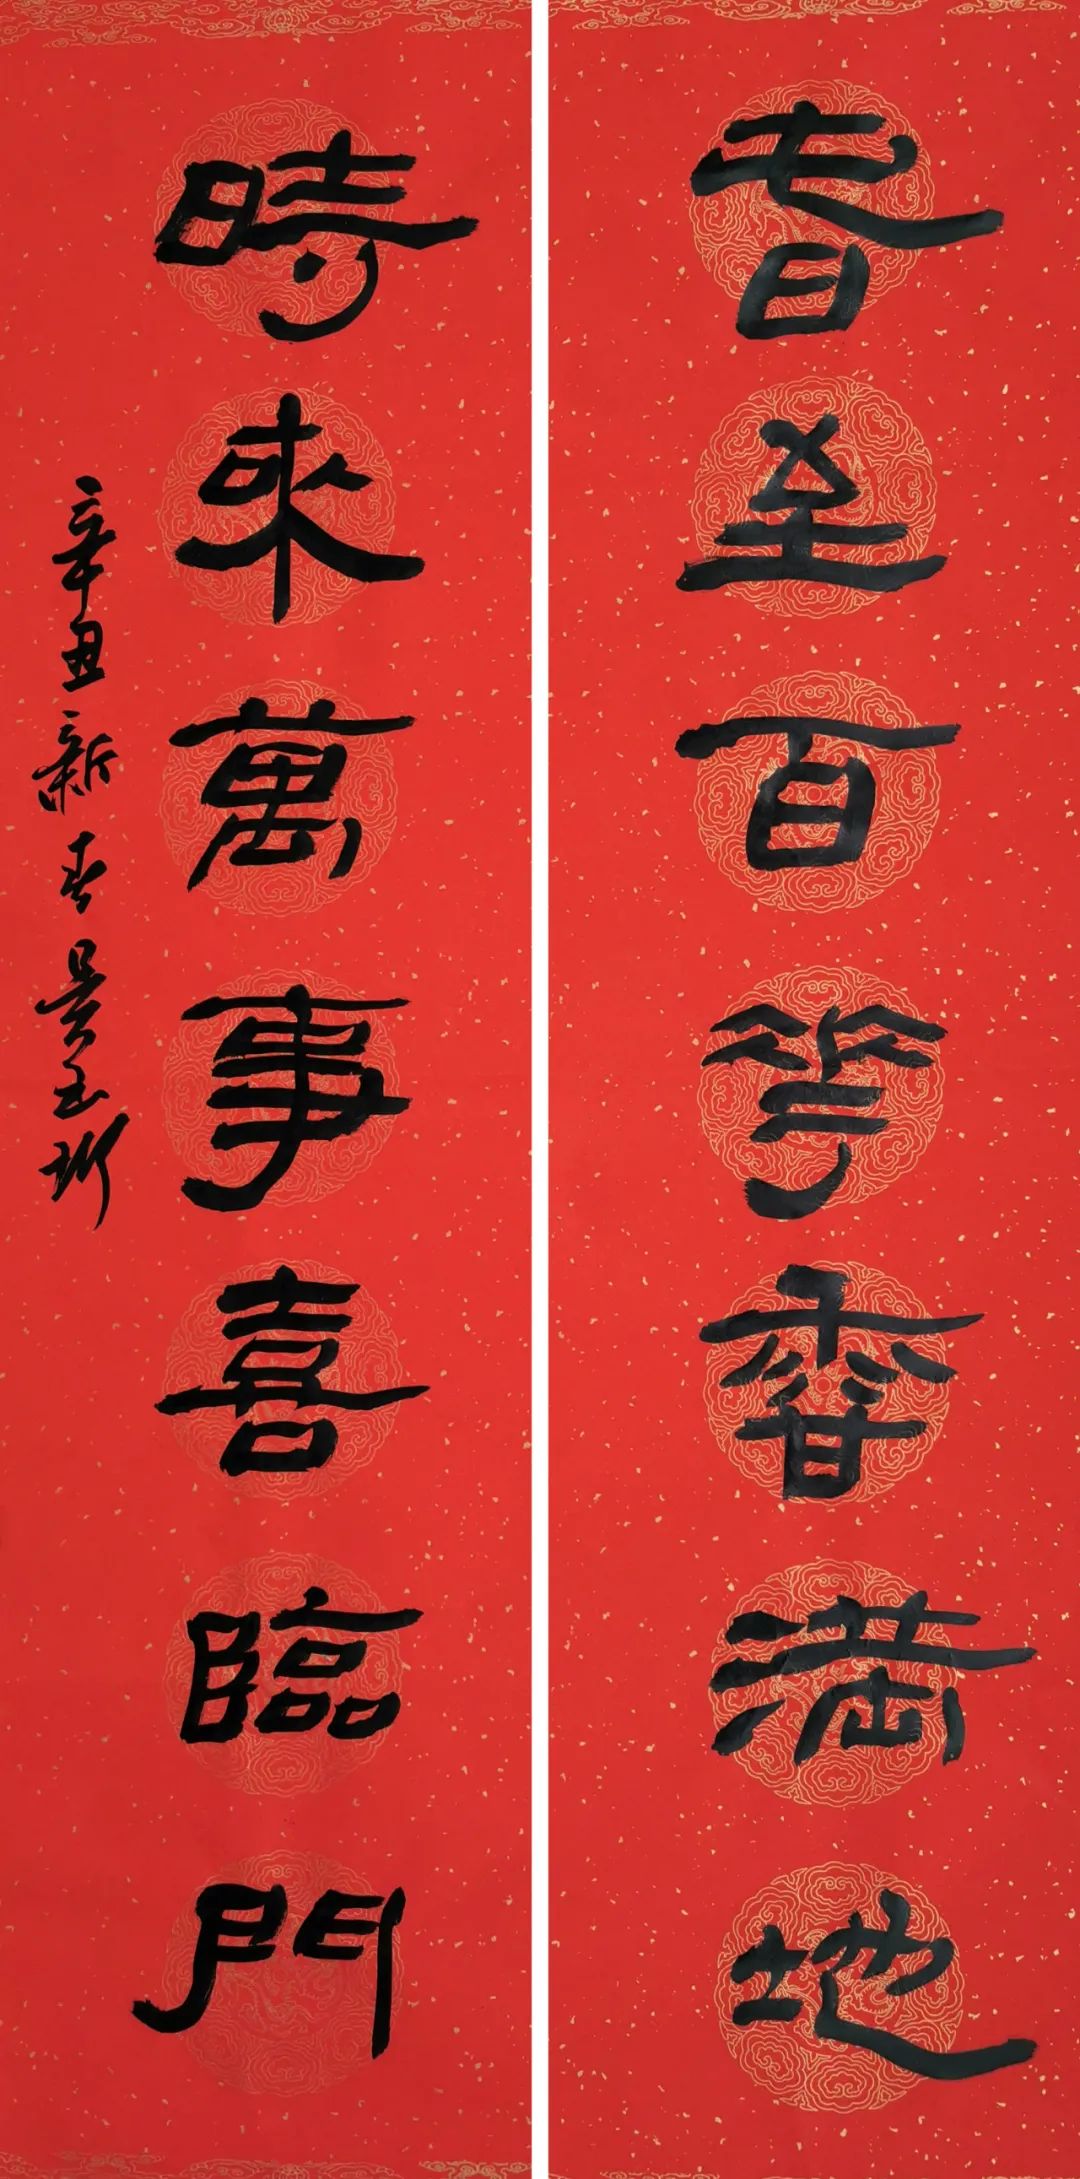 春至百花香满地
時來萬事喜臨門
辛丑新春吴玉圻